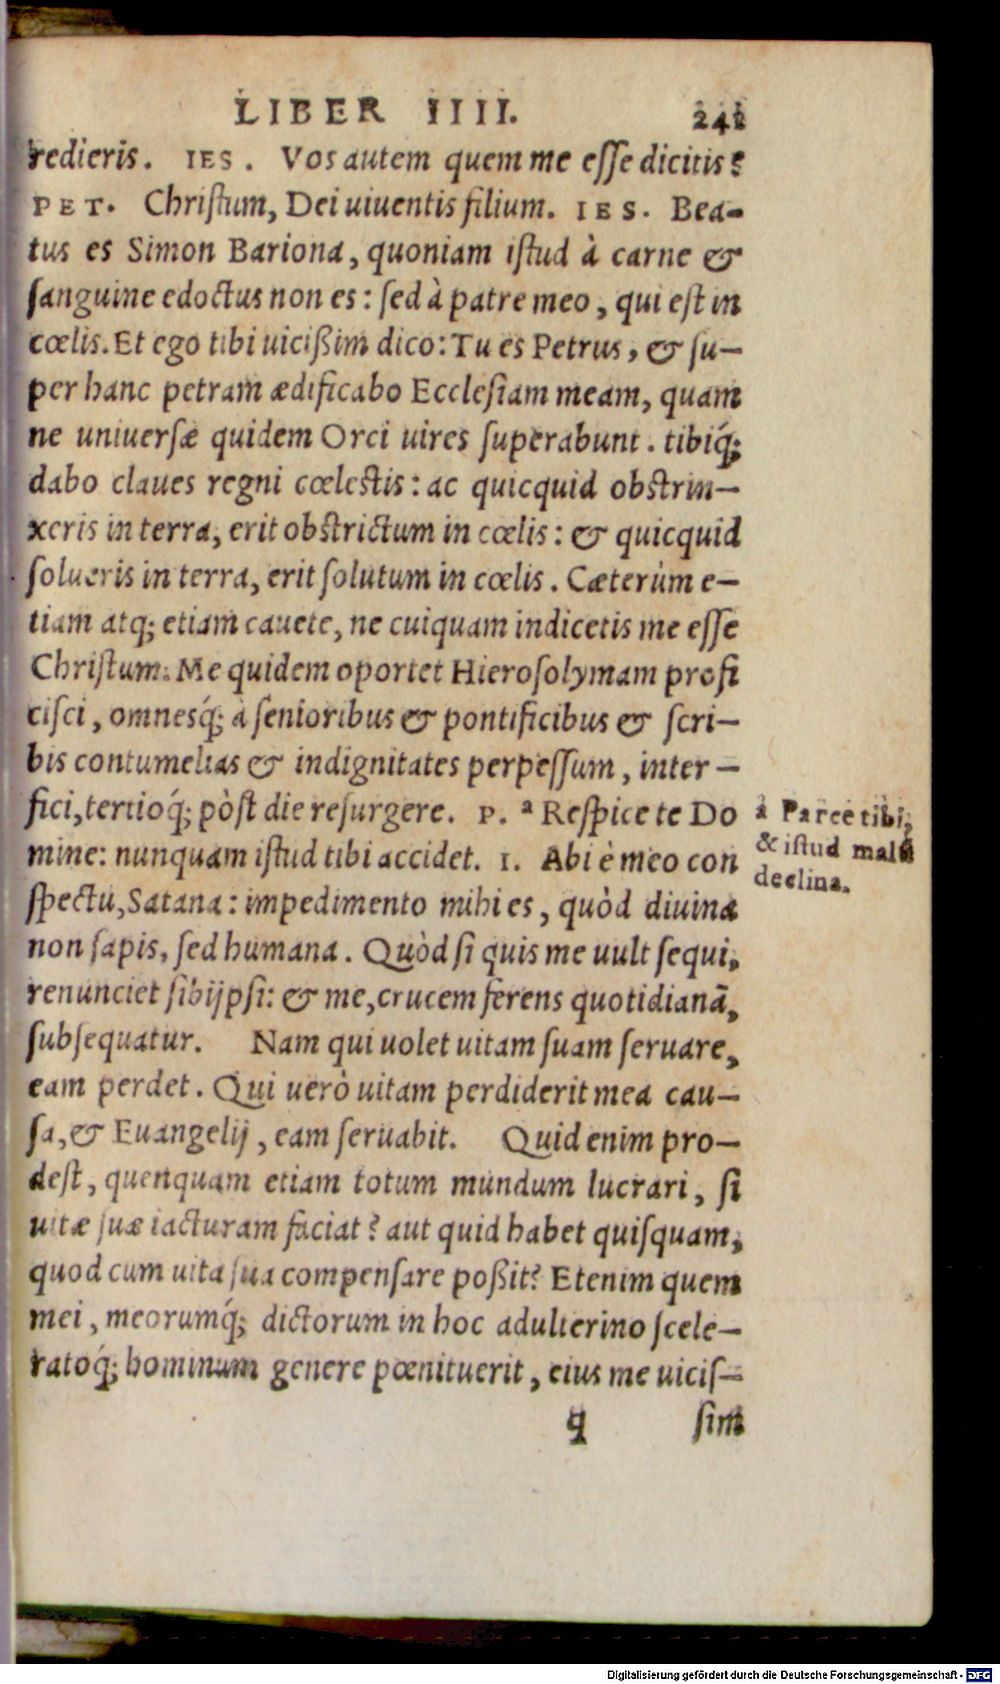 LIBER IIII. 241
redieris. IES. Vos autem quem me esse dicitis?
PET. Christum, Dei uiuentis filium. IES. Bea-
tus es Simon Bariona, quoniam istud à carne &
sanguine edoctus non es: sed à patre meo, qui est in
cœlis. Et ego tibi uicißim dico: Tu es Petrus, & su-
per hanc petram ædificabo Ecclesiam meam, quam
ne uniuersæ quidem Orci uires superabunt. tibiq́;
dabo claues regni cœlestis: ac quicquid obstrin-
xeris in terra, erit obstrictum in cœlis: & quicquid
solueris in terra, erit solutum in cœlis. Cæterùm e-
tiam atq; etiam cauete, ne cuiquam indicetis me esse
Christum. Me quidem oportet Hierosolymam profi
cisci, omnesq́; à senioribus & pontificibus & scri-
bis contumelias & indignitates perpessum, inter-
fici, tertioq́; pòst die resurgere. P. ª Respice te Do
mine: nunquam istud tibi accidet. I. Abi è meo con
spectu, Satana: impedimento mihi es, quòd diuina
non sapis, sed humana. Quòd si quis me uult sequi,
renunciet sibijpsi: & me, crucem ferens quotidianā,
subsequatur. Nam qui uolet uitam suam seruare,
eam perdet. Qui uerò uitam perdiderit mea cau-
sa, & Euangelij, eam seruabit. Quid enim pro-
dest, quenquam etiam totum mundum lucrari, si
uitæ suæ iacturam faciat? aut quid habet quisquam,
quod cum uita sua compensare poßit? Etenim quem
mei, meorumq́; dictorum in hoc adulterino scele-
ratoq́; hominum genere pœnituerit, eius me uicis-
q sim
a Parce tibi,
& istud malū
declina.
Digitalisierung gefördert durch die Deutsche Forschungsgemeinschaft - DFG